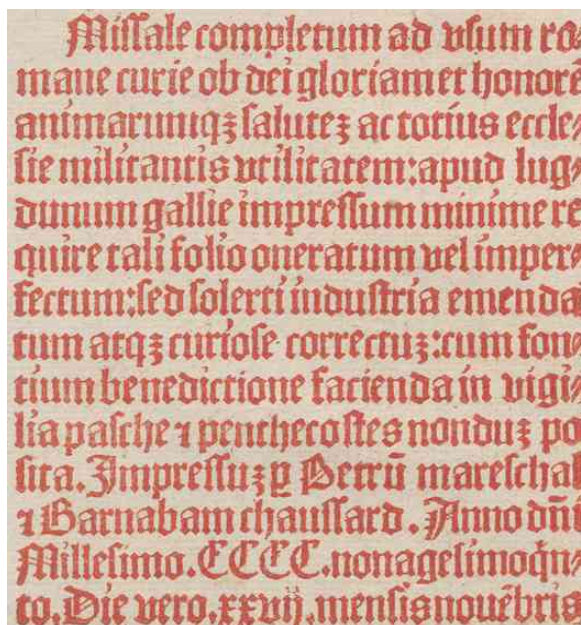 Missale completum ad vsum ro⸗
mane curie ob dei gloriam et honorē
animarumqꝫ saluteꝫ ac totius eccle⸗
sie militantis vtilitatem: apud lug⸗
dunum gallie impressum minime re
quire tali folio oneratum vel imper⸗
fectum: sed solerti industria emenda
tum atqꝫ curiose correctuꝫ: cum fon⸗
tium benedictione facienda in vigi⸗
lia pasche ⁊ penthecostes nonduꝫ po
sita. Impressuꝫ ꝑ Petrū mareschal
⁊ Barnabam chaussard. Anno dn̄i
Millesimo. CCCC. nonagesimoqn̄⸗
to. Die vero. xxvij. mensis nouēbris